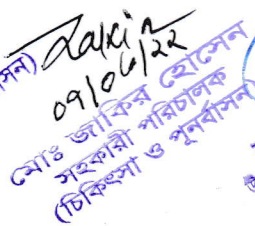 সন)
Zakir
09/06/22
মোঃ জাকির হোসেন
সহকারী পরিচালক
(চিকিৎসা ও পুনর্বাসন)